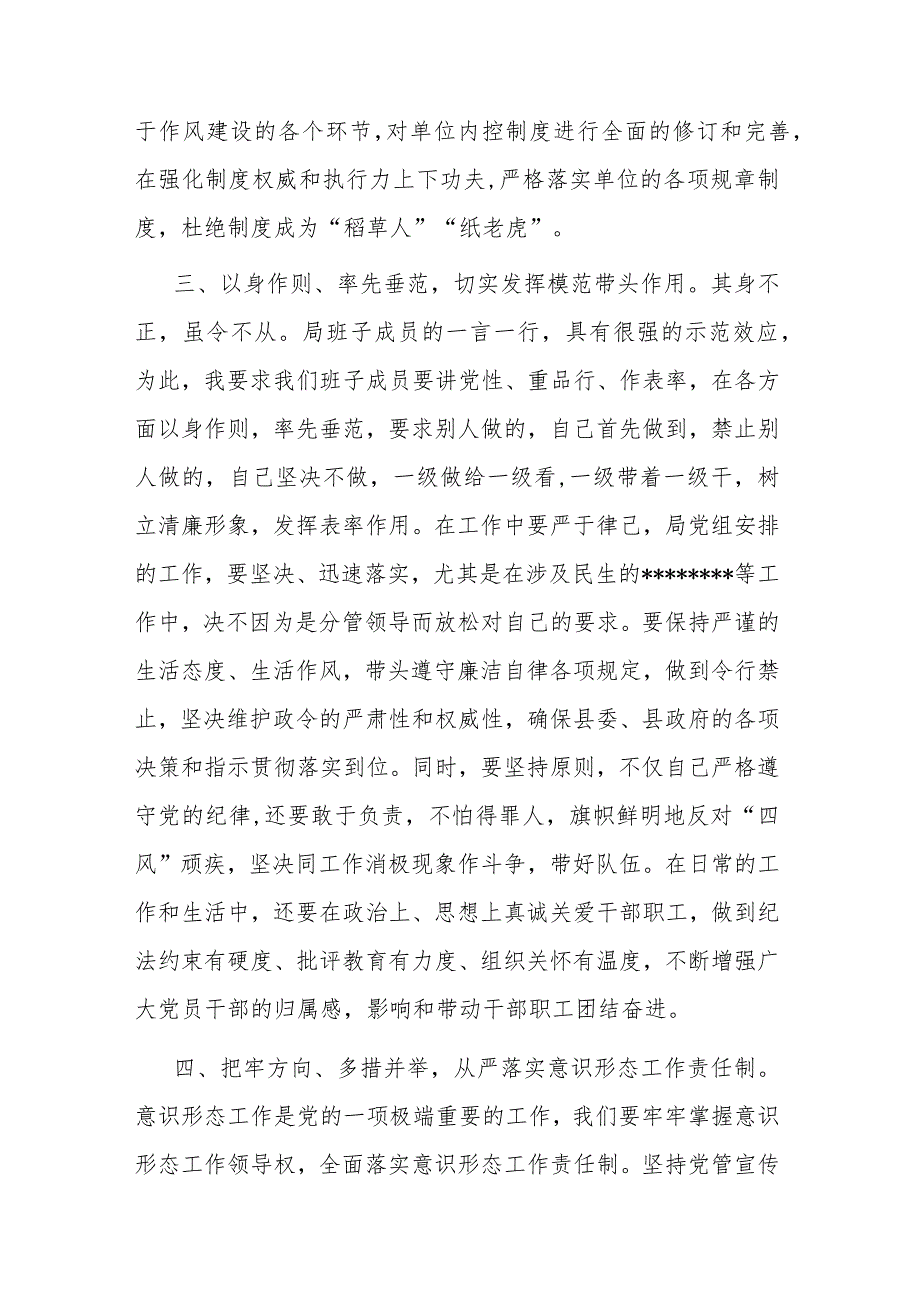 于作风建设的各个环节,对单位内控制度进行全面的修订和完善，
在强化制度权威和执行力上下功夫,严格落实单位的各项规章制
度，杜绝制度成为“稻草人”“纸老虎”。
三、以身作则、率先垂范，切实发挥模范带头作用。其身不
正，虽令不从。局班子成员的一言一行，具有很强的示范效应，
为此，我要求我们班子成员要讲党性、重品行、作表率，在各方
面以身作则，率先垂范，要求别人做的，自己首先做到，禁止别
人做的，自己坚决不做，一级做给一级看,一级带着一级干，树
立清廉形象，发挥表率作用。在工作中要严于律己，局党组安排
的工作，要坚决、迅速落实，尤其是在涉及民生的********等工
作中，决不因为是分管领导而放松对自己的要求。要保持严谨的
生活态度、生活作风，带头遵守廉洁自律各项规定，做到令行禁
止，坚决维护政令的严肃性和权威性，确保县委、县政府的各项
决策和指示贯彻落实到位。同时，要坚持原则，不仅自己严格遵
守党的纪律,还要敢于负责，不怕得罪人，旗帜鲜明地反对“四
风”顽疾，坚决同工作消极现象作斗争，带好队伍。在日常的工
作和生活中，还要在政治上、思想上真诚关爱干部职工，做到纪
法约束有硬度、批评教育有力度、组织关怀有温度，不断增强广
大党员干部的归属感，影响和带动干部职工团结奋进。
四、把牢方向、多措并举，从严落实意识形态工作责任制。
意识形态工作是党的一项极端重要的工作，我们要牢牢掌握意识
形态工作领导权，全面落实意识形态工作责任制。坚持党管宣传